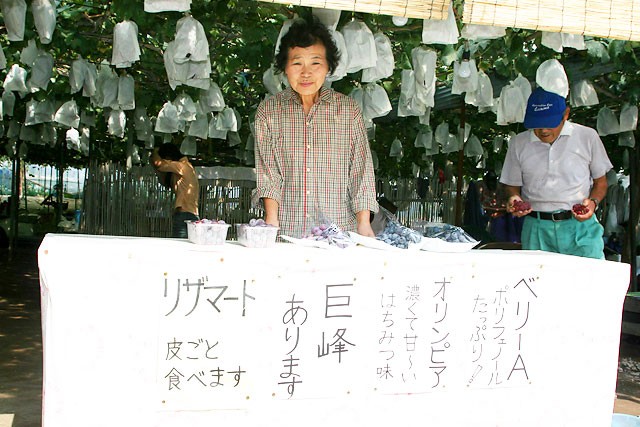 リザマート
皮ごと
食べます
巨峰
あります
オリンピア.
濃くて甘〜い
はちみつ味
ベリーA.
ポリフェノール
たっぷり!